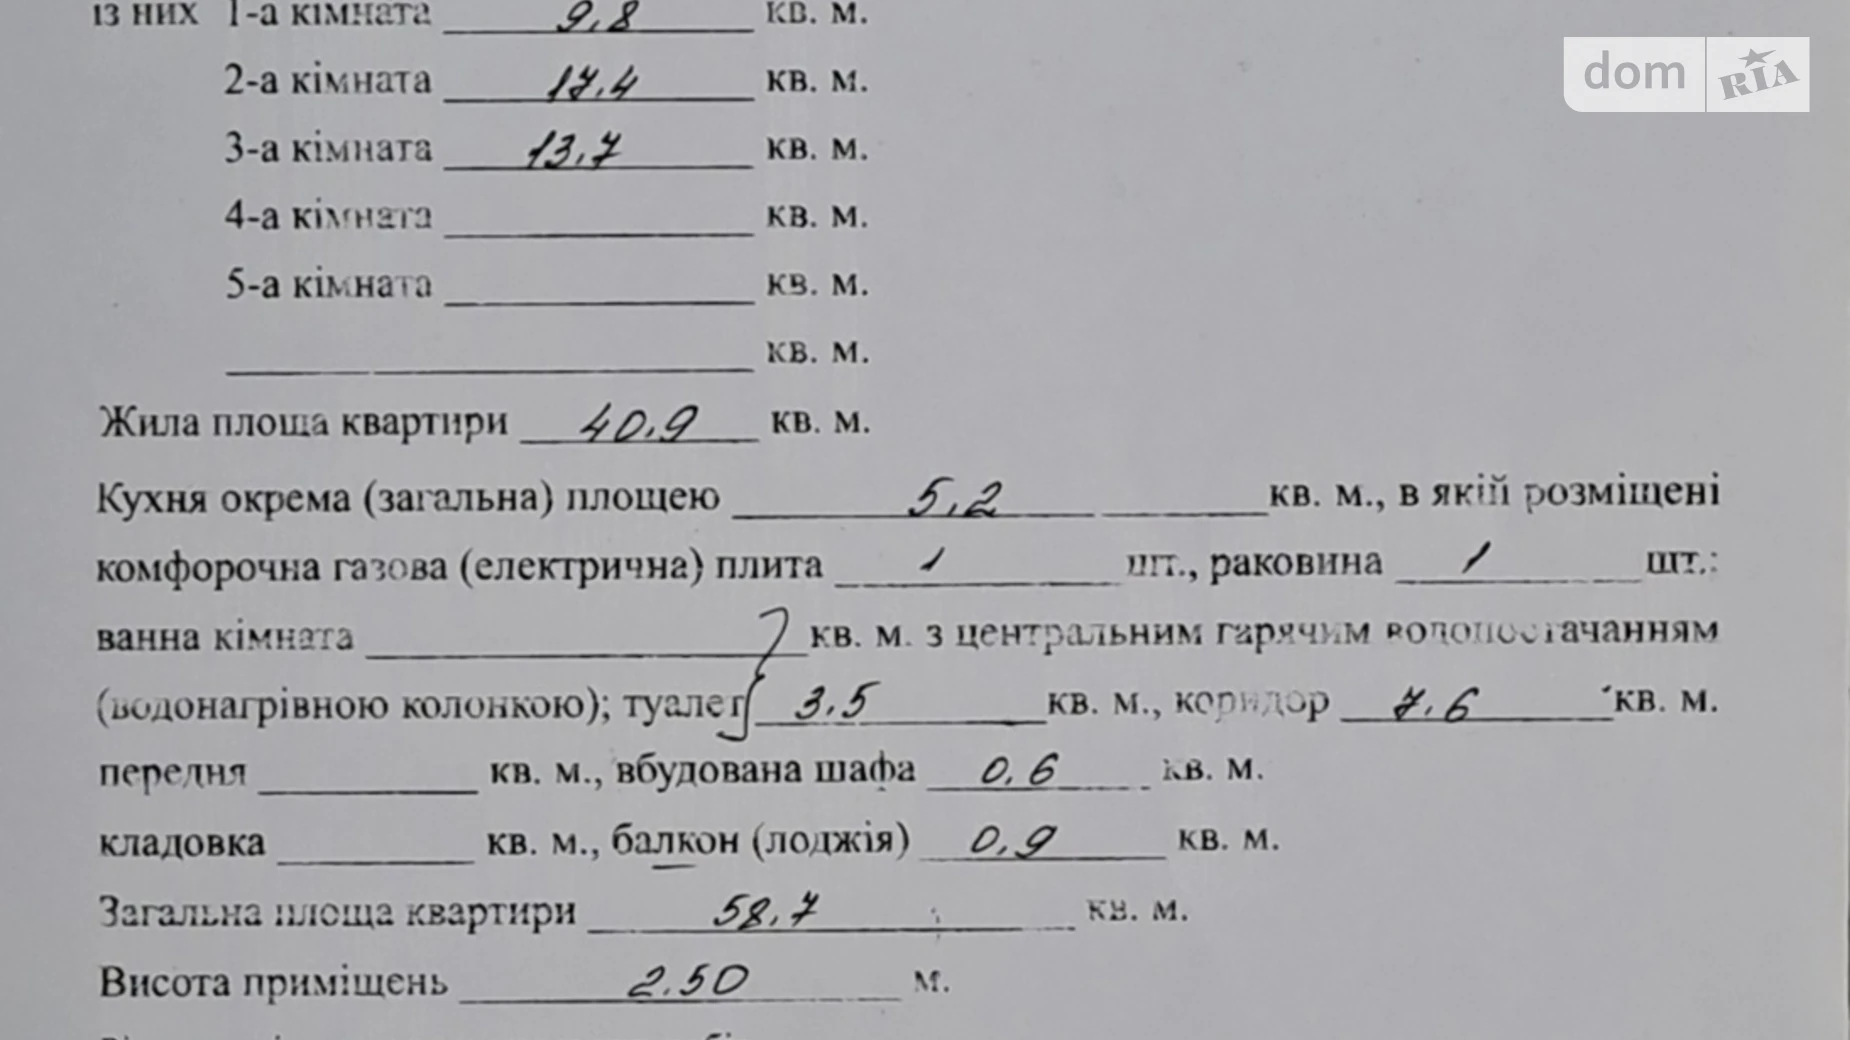 із них 1-а кімната 9,8 кв. м.
dom RIA
2-а кімната 17,4 кв. м.
3-а кімната 13,7 кв. м.
4-а кімната кв. м.
5-а кімната кв. м.
кв. м.
Жила площа квартири 40,9 кв. м.
Кухня окрема (загальна) площею 5,2 кв. м., в якій розміщені
комфорочна газова (електрична) плита 1 шт., раковина 1 шт.:
ванна кімната кв. м. з центральним гарячим водопостачанням
(водонагрівною колонкою); туалет 3,5 кв. м., коридор 7,6 кв. м.
передня кв. м., вбудована шафа 0,6 кв. м.
кладовка кв. м., балкон (лоджія) 0,9 кв. м.
Загальна площа квартири 58,7 кв. м.
Висота приміщень 2.50 м.